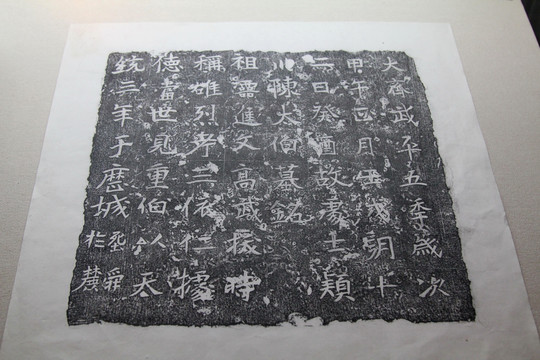 大齊武平五季歲次
甲午正月壬戌朔十
二日癸酉故處士潁
川陳伯墓銘
祖諱進文高武振時
稱雄烈考三依仁據
德當世見重伯以天
統三年于歷城死舜於